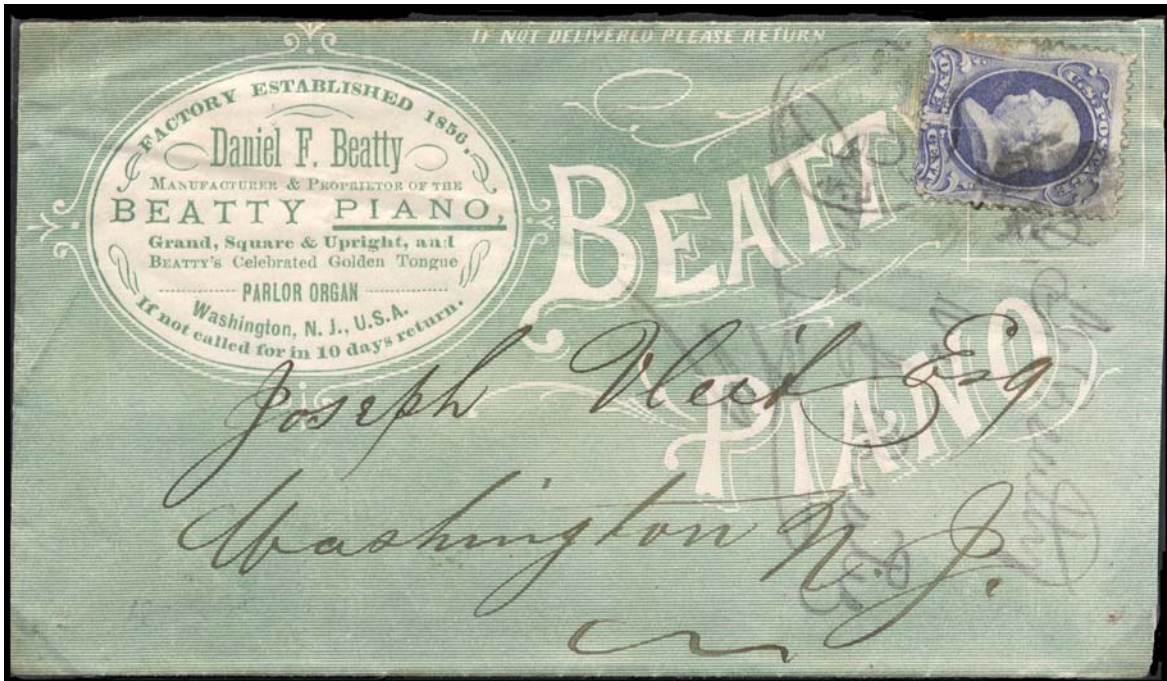 IF NOT DELIVERED PLEASE RETURN
FACTORY ESTABLISHED 1856.
Daniel F. Beatty
MANUFACTURER & PROPRIETOR OF THE
BEATTY PIANO,
Grand, Square & Upright, and
BEATTY'S Celebrated Golden Tongue
PARLOR ORGAN
Washington, N. J., U.S.A.
If not called for in 10 days return.
BEATTY
PIANO
U.S. POSTAGE
ONE CENT
Joseph Vleit Esq
Washington N. J.